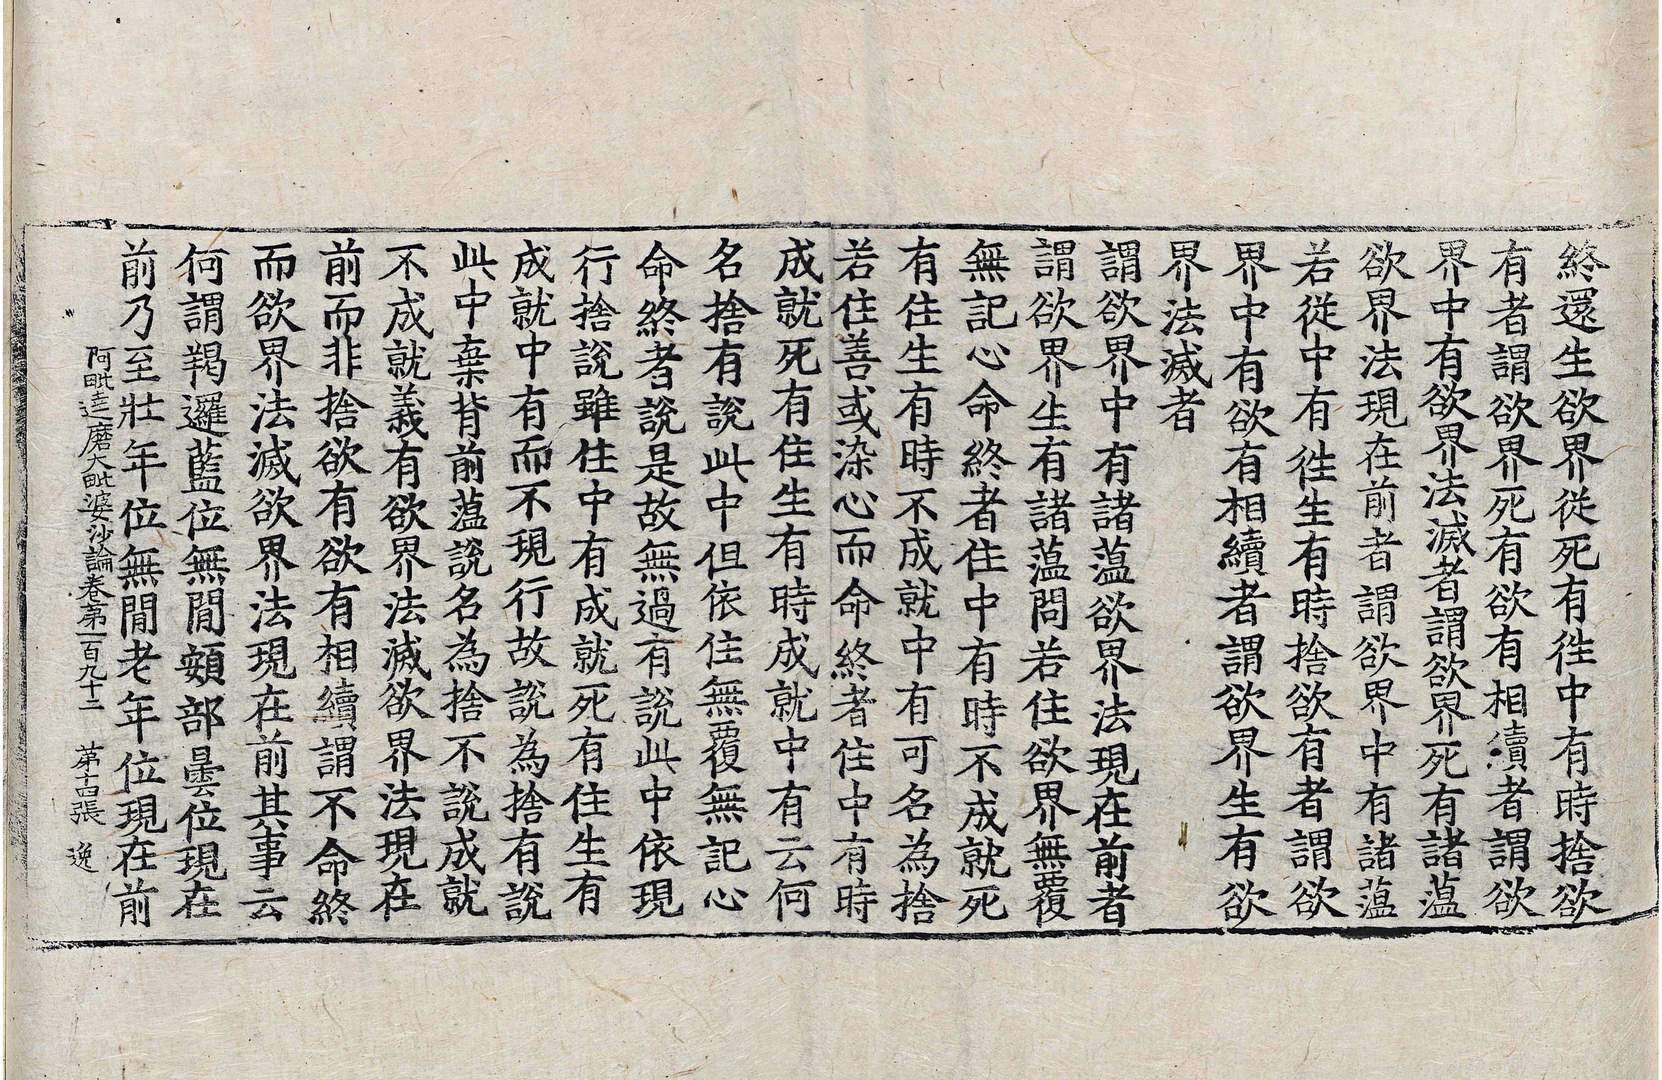 終還生欲界從死有徃中有時捨欲
有者謂欲界死有欲有相續者謂欲
界中有欲界法滅者謂欲界死有諸蘊
欲界法現在前者謂欲界中有諸蘊
若從中有徃生有時捨欲有者謂欲
界中有欲有相續者謂欲界生有欲
界法滅者
謂欲界中有諸蘊欲界法現在前者
謂欲界生有諸蘊問若住欲界無覆
無記心命終者住中有時不成就死
有住生有時不成就中有可名為捨
若住善或染心而命終者住中有時
成就死有住生有時成就中有云何
名捨有說此中但依住無覆無記心
命終者說是故無過有說此中依現
行捨說雖住中有成就死有住生有
成就中有而不現行故說為捨有說
此中棄背前蘊說名為捨不說成就
不成就義有欲界法滅欲界法現在
前而非捨欲有欲有相續謂不命終
而欲界法滅欲界法現在前其事云
何謂羯邏藍位無間頞部曇位現在
前乃至壯年位無間老年位現在前
阿毗達磨大毗婆沙論卷第一百九十二 第十四張 逸